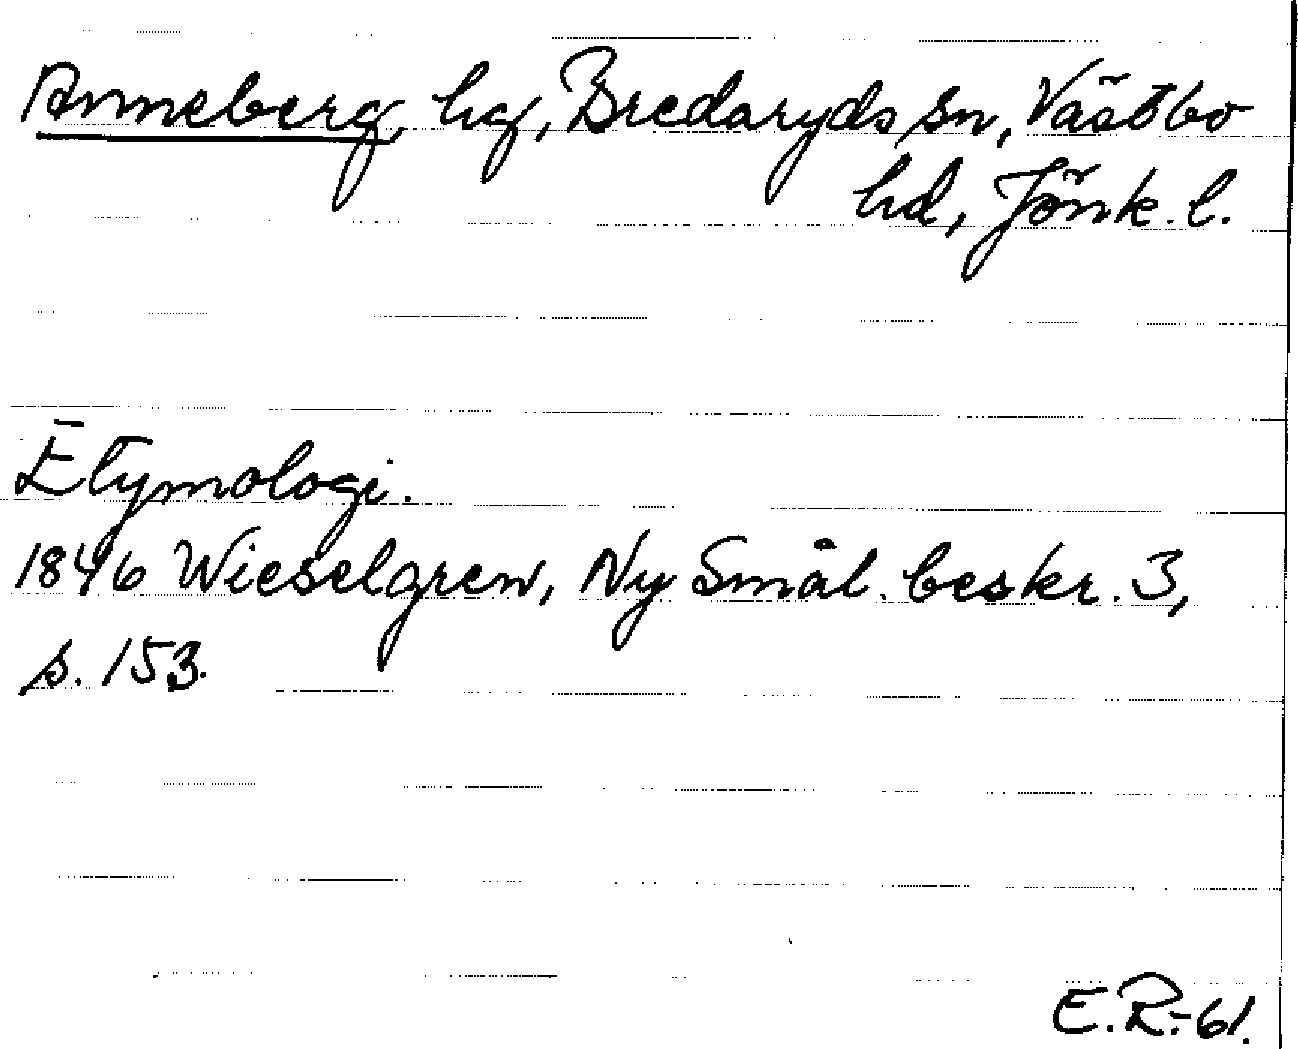 Anneberg, hg, Bredaryds sn, Västbo
hd, Jönk. l.
Etymologi.
1846 Wieselgren, Ny Smål. beskr. 3,
s. 153.
E.R.-61.